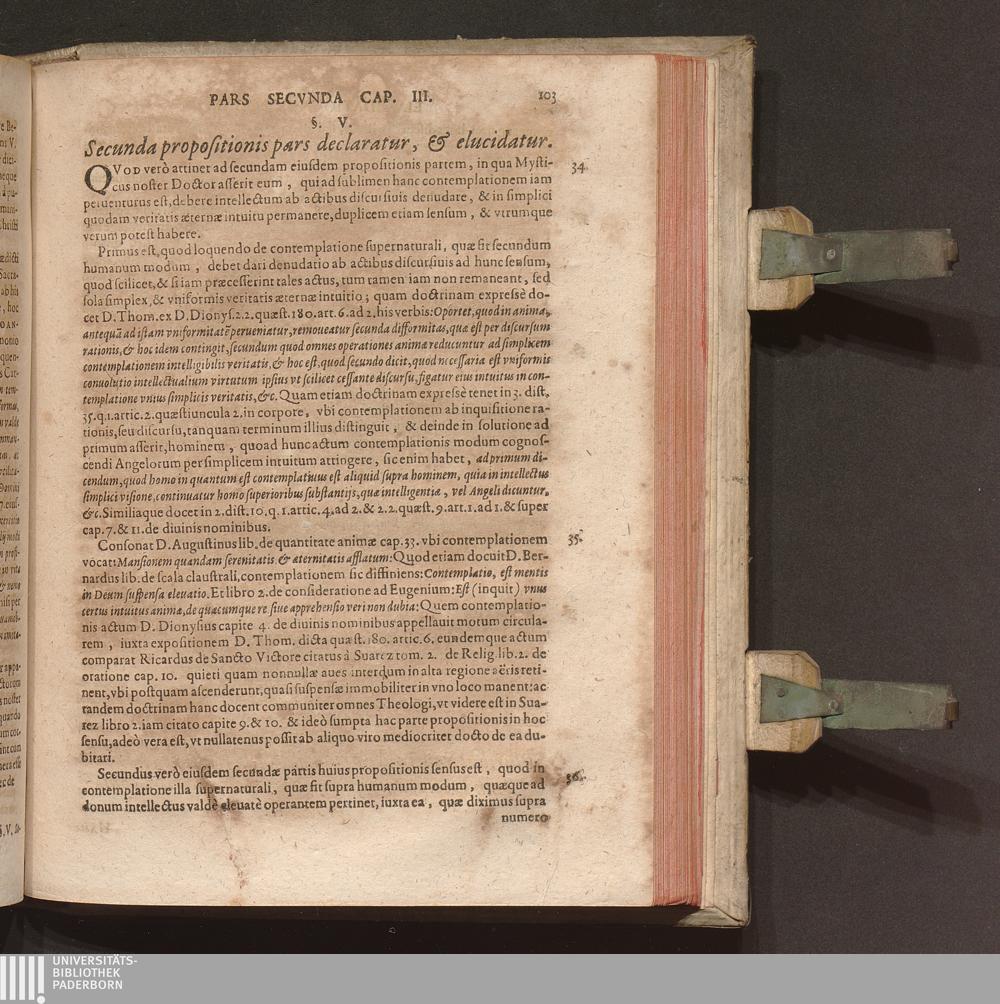 PARS SECVNDA CAP. III. 103
§. V.
Secunda propositionis pars declaratur, & elucidatur.
QVOD verò attinet ad secundam eiusdem propositionis partem, in qua Mysti- 34.
cus noster Doctor asserit eum, qui ad sublimen hanc contemplationem iam
peruenturus est, debere intellectum ab actibus discursiuis denudare, & in simplici
quodam veritatis æternæ intuitu permanere, duplicem etiam sensum, & vtrumque
verum potest habere.
Primus est, quod loquendo de contemplatione supernaturali, quæ fit secundum
humanum modum, debet dari denudatio ab actibus discursiuis ad hunc sensum,
quod scilicet, & si iam præcesserint tales actus, tum tamen iam non remaneant, sed
sola simplex, & vniformis veritatis æternæ intuitio; quam doctrinam expressè do-
cet D. Thom. ex D. Dionys. 2.2. quæst. 180. art. 6. ad 2. his verbis: Oportet, quod in anima,
antequã ad istam vniformitatẽ perueniatur, remoueatur secunda difformitas, quæ est per discursum
rationis, & hoc idem contingit, secundum quod omnes operationes animæ reducuntur ad simplicem
contemplationem intelligibilis veritatis, & hoc est, quod secundo dicit, quod necessaria est vniformis
conuolutio intellectualium virtutum ipsius vt scilicet cessante discursu, figatur eius intuitus in con-
templatione vnius simplicis veritatis, &c. Quam etiam doctrinam expressè tenet in 3. dist.
35. q. 1. artic. 2. quæstiuncula 2. in corpore, vbi contemplationem ab inquisitione ra-
tionis, seu discursu, tanquam terminum illius distinguit, & deinde in solutione ad
primum asserit, hominem, quoad hunc actum contemplationis modum cognos-
cendi Angelorum per simplicem intuitum attingere, sic enim habet, ad primum di-
cendum, quod homo in quantum est contemplatiuus est aliquid supra hominem, quia in intellectus
simplici visione, continuatur homo superioribus substantijs, quæ intelligentiæ, vel Angeli dicuntur,
&c. Similiaque docet in 2. dist. 10. q. 1. artic. 4. ad 2. & 2.2. quæst. 9. art. 1. ad 1. & super
cap. 7. & 11. de diuinis nominibus.
Consonat D. Augustinus lib. de quantitate animæ cap. 33. vbi contemplationem 35.
vocat: Mansionem quandam serenitatis & æternitatis afflatum: Quod etiam docuit D. Ber-
nardus lib. de scala claustrali, contemplationem sic diffiniens: Contemplatio, est mentis
in Deum suspensa eleuatio. Et libro 2. de consideratione ad Eugenium: Est (inquit) vnus
certus intuitus animæ, de quacumque re siue apprehensio veri non dubia: Quem contemplatio-
nis actum D. Dionysius capite 4. de diuinis nominibus appellauit motum circula-
rem, iuxta expositionem D. Thom. dicta quæst. 180. artic. 6. eundemque actum
comparat Ricardus de Sancto Victore citatus à Suarez tom. 2. de Relig. lib. 2. de
oratione cap. 10. quieti quam nonnullæ aues interdum in alta regione aëris reti-
nent, vbi postquam ascenderunt, quasi suspensæ immobiliter in vno loco manent: ac
tandem doctrinam hanc docent communiter omnes Theologi, vt videre est in Sua-
rez libro 2. iam citato capite 9. & 10. & ideò sumpta hac parte propositionis in hoc
sensu, adeò vera est, vt nullatenus possit ab aliquo viro mediocriter docto de ea du-
bitari.
Secundus verò eiusdem secundæ partis huius propositionis sensus est, quod in 36.
contemplatione illa supernaturali, quæ fit supra humanum modum, quæque ad
donum intellectus valdè eleuatè operantem pertinet, iuxta ea, quæ diximus supra
numero
UNIVERSITÄTS-
BIBLIOTHEK
PADERBORN